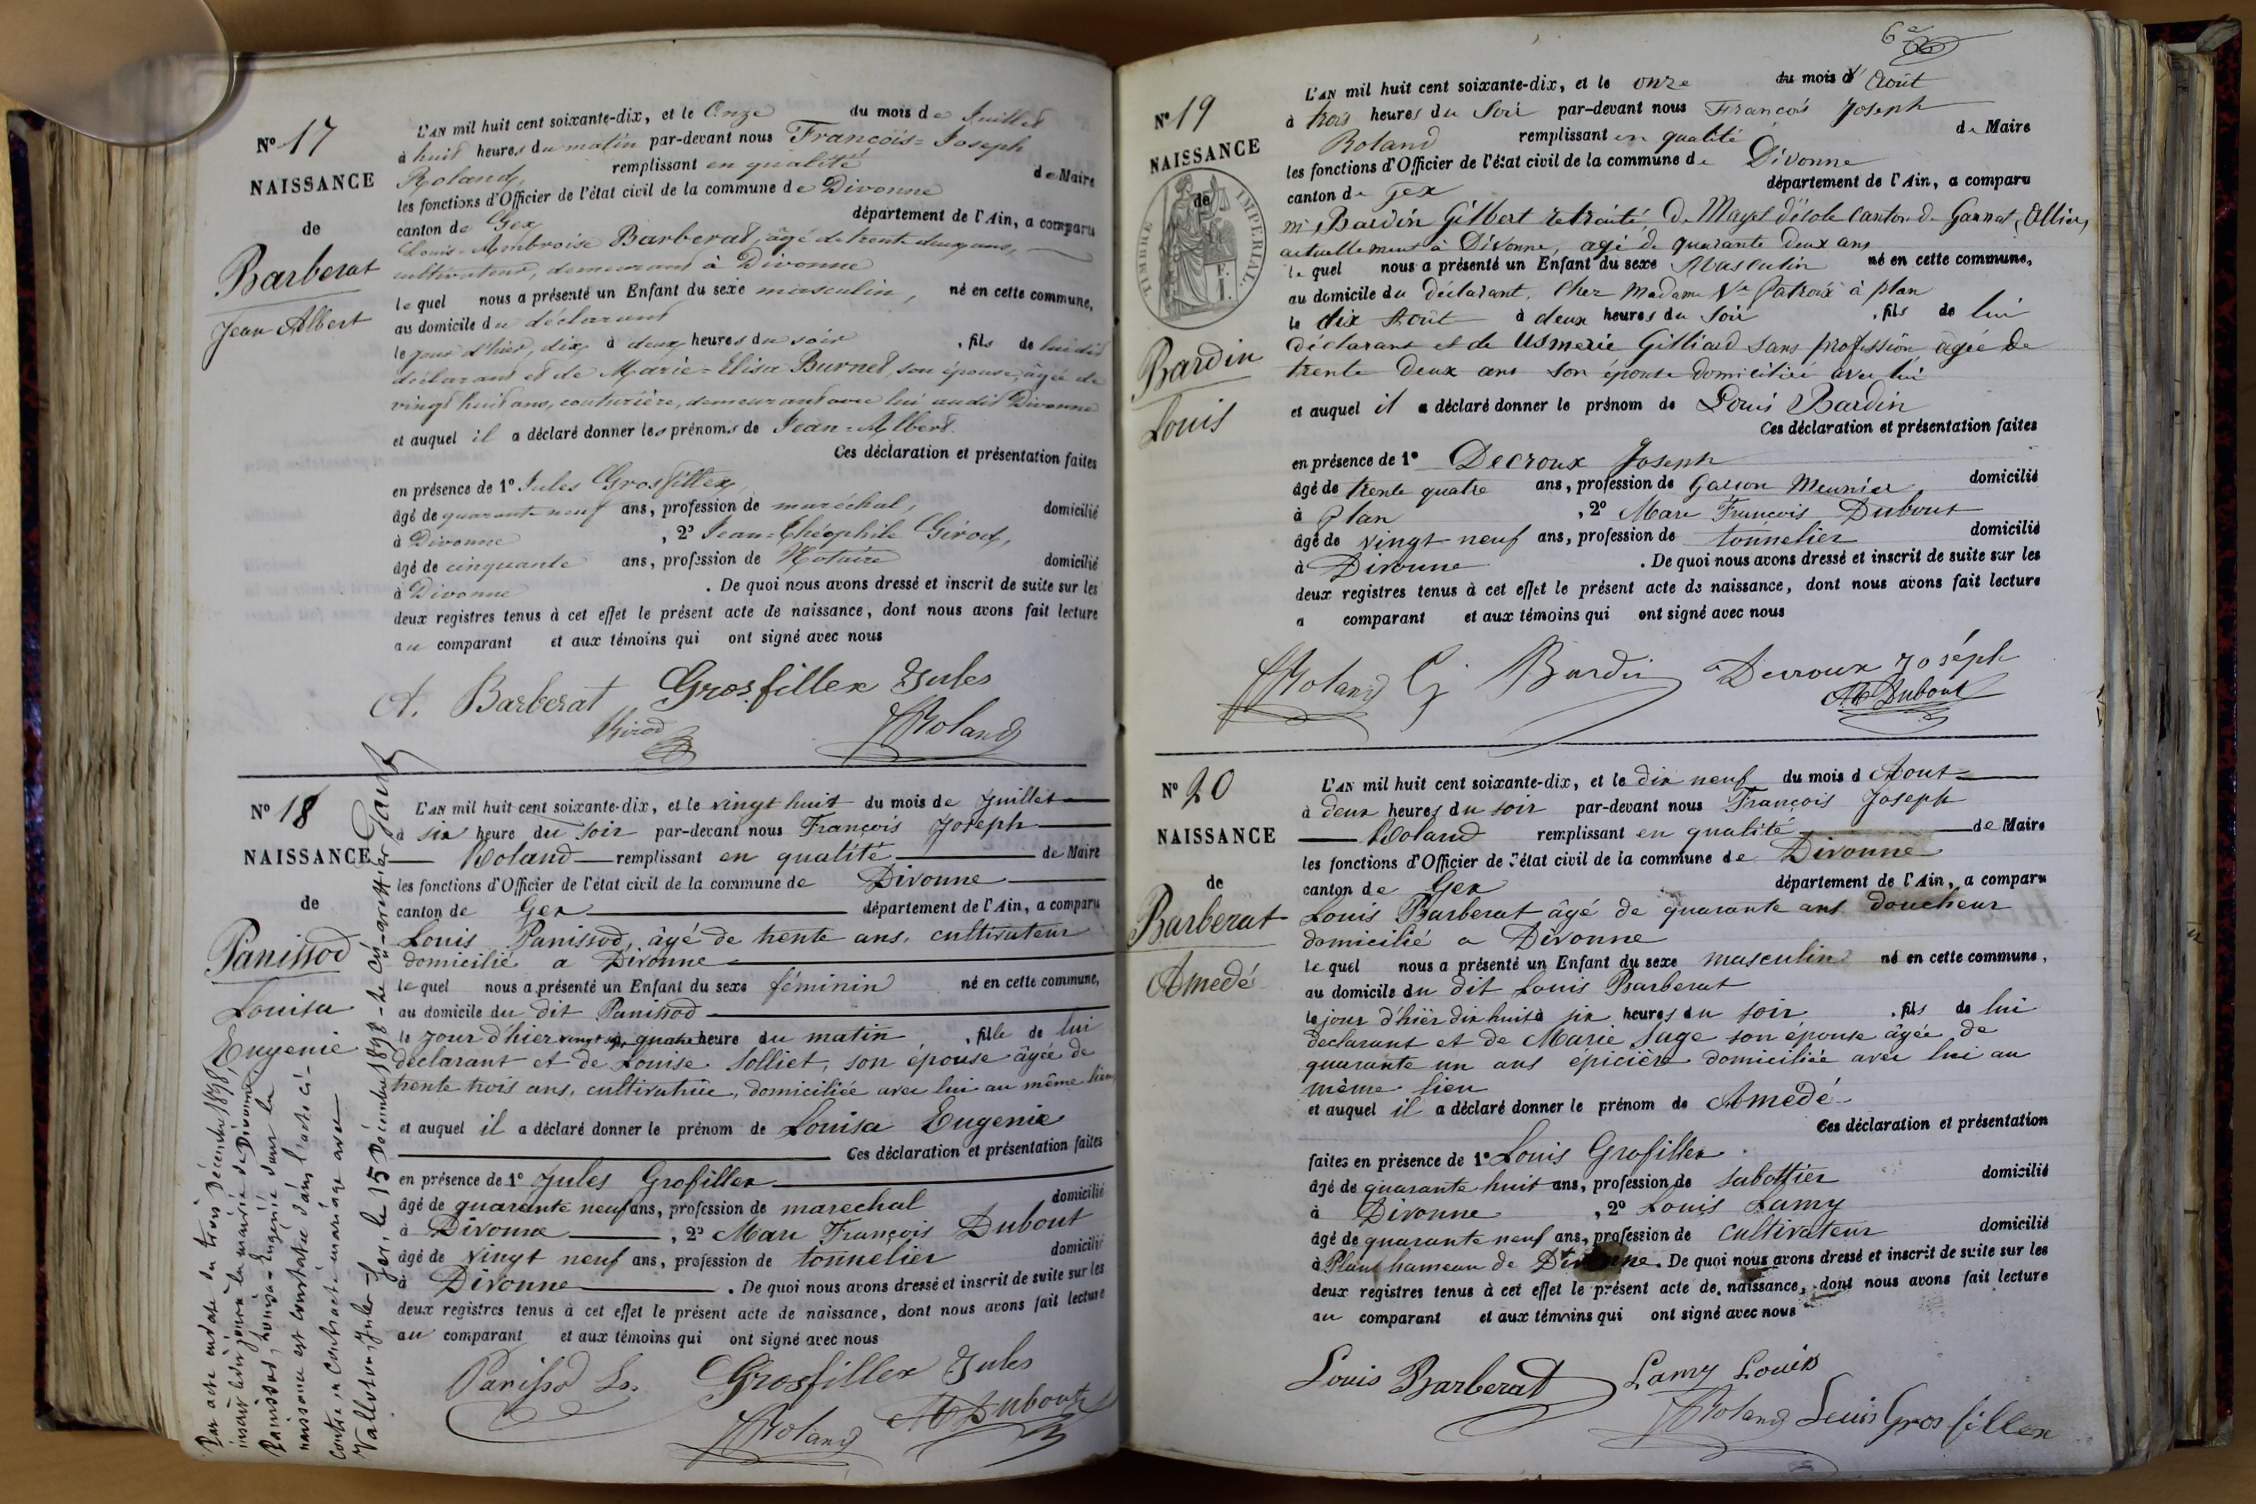 N° 17
NAISSANCE
de
Barberat
Jean Albert
L'AN mil huit cent soixante-dix, et le Onze du mois de Juillet
à huit heures du matin par-devant nous François=Joseph
Roland, remplissant en qualité de Maire
les fonctions d'Officier de l'état civil de la commune de Divonne
canton de Gex département de l'Ain, a comparu
Louis-Ambroise Barberat, âgé de trente deux ans,
cultivateur, demeurant à Divonne
lequel nous a présenté un Enfant du sexe masculin, né en cette commune,
au domicile du déclarant
le jour d'hier, dix, à deux heures du soir, fils de lui dit
déclarant et de Marie=Elisa Burnet, son épouse, âgée de
vingt huit ans, couturière, demeurant avec lui audit Divonne
et auquel il a déclaré donner les prénoms de Jean=Albert.
Ces déclaration et présentation faites
en présence de 1° Jules Grosfillex,
âgé de quarante neuf ans, profession de maréchal, domicilié
à Divonne, 2° Jean=Théophile Girod,
âgé de cinquante ans, profession de Notaire domicilié
à Divonne. De quoi nous avons dressé et inscrit de suite sur les
deux registres tenus à cet effet le présent acte de naissance, dont nous avons fait lecture
au comparant et aux témoins qui ont signé avec nous
A. Barberat Grosfillex Jules
Girod Roland
N° 18
NAISSANCE
de
Panissod
Louisa
Eugenie
L'AN mil huit cent soixante-dix, et le vingt huit du mois de Juillet
à six heure du soir par-devant nous François Joseph
Roland remplissant en qualité de Maire
les fonctions d'Officier de l'état civil de la commune de Divonne
canton de Gex département de l'Ain, a comparu
Louis Panissod, âgé de trente ans, cultivateur
domicilié a Divonne
lequel nous a présenté un Enfant du sexe féminin né en cette commune,
au domicile du dit Panissod
le jour d'hier vingt sept, quatre heure du matin, fille de lui
déclarant et de Louise Solliet, son épouse âgée de
trente trois ans, cultivatrice, domiciliée avec lui au même lieu
et auquel il a déclaré donner le prénom de Louisa Eugenie
Ces déclaration et présentation faites
en présence de 1° Jules Grosfillex
âgé de quarante neuf ans, profession de marechal domicilié
à Divonne, 2° Marc François Dubout
âgé de vingt neuf ans, profession de tonnelier domicilié
à Divonne. De quoi nous avons dressé et inscrit de suite sur les
deux registres tenus à cet effet le présent acte de naissance, dont nous avons fait lecture
au comparant et aux témoins qui ont signé avec nous
Panissod Ls. Grosfillex Jules
Roland M Dubout
Par acte en date du trois Décembre 1898,
inscrit le dit jour à la mairie de Divonne,
Panissod, Louisa-Eugénie dont la
naissance est constatée dans l'acte ci-
contre, a contracté mariage avec
Vallotton, Jules. Gex, le 15 Décembre 1898. Le
N° 19
NAISSANCE
de
TIMBRE IMPÉRIAL
Bardin
Louis
L'AN mil huit cent soixante-dix, et le onze du mois d'Août
à trois heures du Soir par-devant nous François Joseph
Roland remplissant en qualité de Maire
les fonctions d'Officier de l'état civil de la commune de Divonne
canton de Gex département de l'Ain, a comparu
Bardin Gilbert retraité, De Mayet d'école canton de Gannat, (Allier,
actuellement à Divonne, agé de quarante deux ans
lequel nous a présenté un Enfant du sexe Masculin né en cette commune,
au domicile du déclarant, chez Madame Ve Patroix à plan
le dix Août à deux heures du Soir, fils de lui
déclarant et de Usmerie Gilliard sans profession agée de
trente deux ans son épouse domiciliée avec lui
et auquel il a déclaré donner le prénom de Louis Bardin
Ces déclaration et présentation faites
en présence de 1° Decroux Joseph
âgé de trente quatre ans, profession de Garson Meunier domicilié
à Plan, 2° Marc François Dubout
âgé de vingt neuf ans, profession de tonnelier domicilié
à Divonne. De quoi nous avons dressé et inscrit de suite sur les
deux registres tenus à cet effet le présent acte de naissance, dont nous avons fait lecture
a comparant et aux témoins qui ont signé avec nous
Roland G Bardin Decroux Joséph
M Dubout
N° 20
NAISSANCE
de
Barberat
Amedé
L'AN mil huit cent soixante-dix, et le dix neuf du mois d Aout
à deux heures du soir par-devant nous François Joseph
Roland remplissant en qualité de Maire
les fonctions d'Officier de l'état civil de la commune de Divonne
canton de Gex département de l'Ain, a comparu
Louis Barberat âgé de quarante ans doucheur
domicilié a Divonne
lequel nous a présenté un Enfant du sexe masculin né en cette commune,
au domicile du dit Louis Barberat
le jour d'hier dix huit à six heures du soir, fils de lui
declarant et de Marie Juge son épouse âgée de
quarante un ans épicière domiciliée avec lui au
même lieu
et auquel il a déclaré donner le prénom de Amedé
Ces déclaration et présentation
faites en présence de 1° Louis Grosfillex
âgé de quarante huit ans, profession de sabottier domicilié
à Divonne, 2° Louis Lamy
âgé de quarante neuf ans, profession de cultivateur domicilié
à Plant hameau de Divonne. De quoi nous avons dressé et inscrit de suite sur les
deux registres tenus à cet effet le présent acte de naissance, dont nous avons fait lecture
au comparant et aux témoins qui ont signé avec nous
Louis Barberat Lamy Louis
Roland Louis Gros fillex